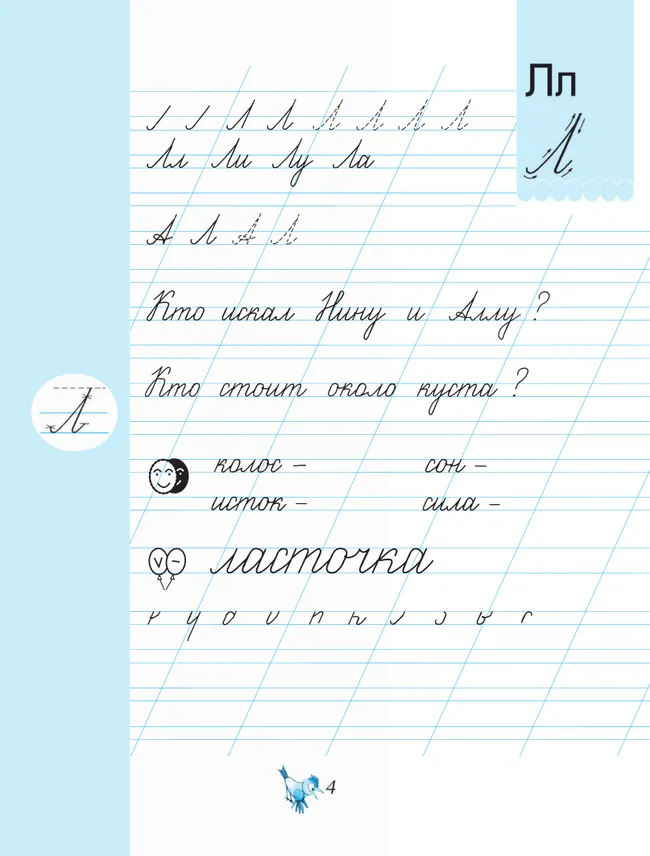 Лл
Л
Л Л Л Л Л Л
Лл Ли Лу Ла
А Л А Л
Кто искал Нину и Аллу ?
Кто стоит около куста ?
Л
колос – сон –
исток – сила –
ласточка
4